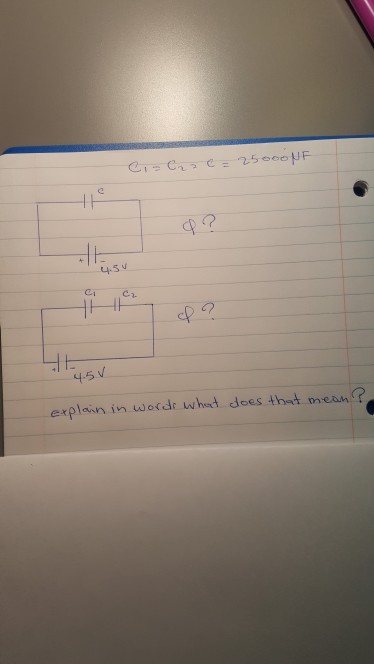 C₁ = C₂ = C = 25000 µF
C
φ?
+ - 4.5V
C₁ C₂
φ?
+ - 4.5V
explain in words what does that mean?